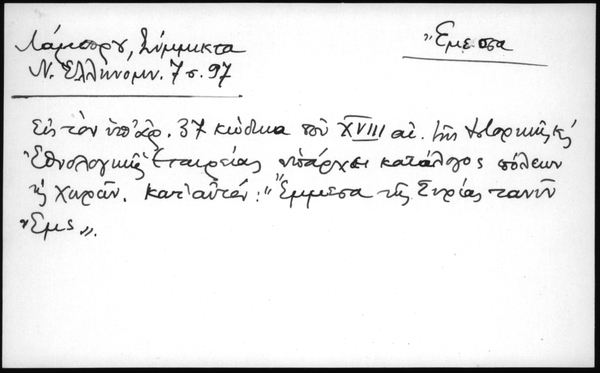 Λάμπρου, Σύμμικτα
Ν. Ἑλληνομν. 7 σ. 97
Ἔμεσα
Εἰς τὸν ὑπ' ἀρ. 37 κώδικα τοῦ XVIII αἰ. τῆς Ἱστορικῆς κ'
Ἐθνολογικῆς Ἑταιρείας ὑπάρχει κατάλογος πόλεων
κ' χωρῶν. Κατ' αὐτόν: "Ἔμμεσα τῆς Συρίας τανῦν
Ἐμς".